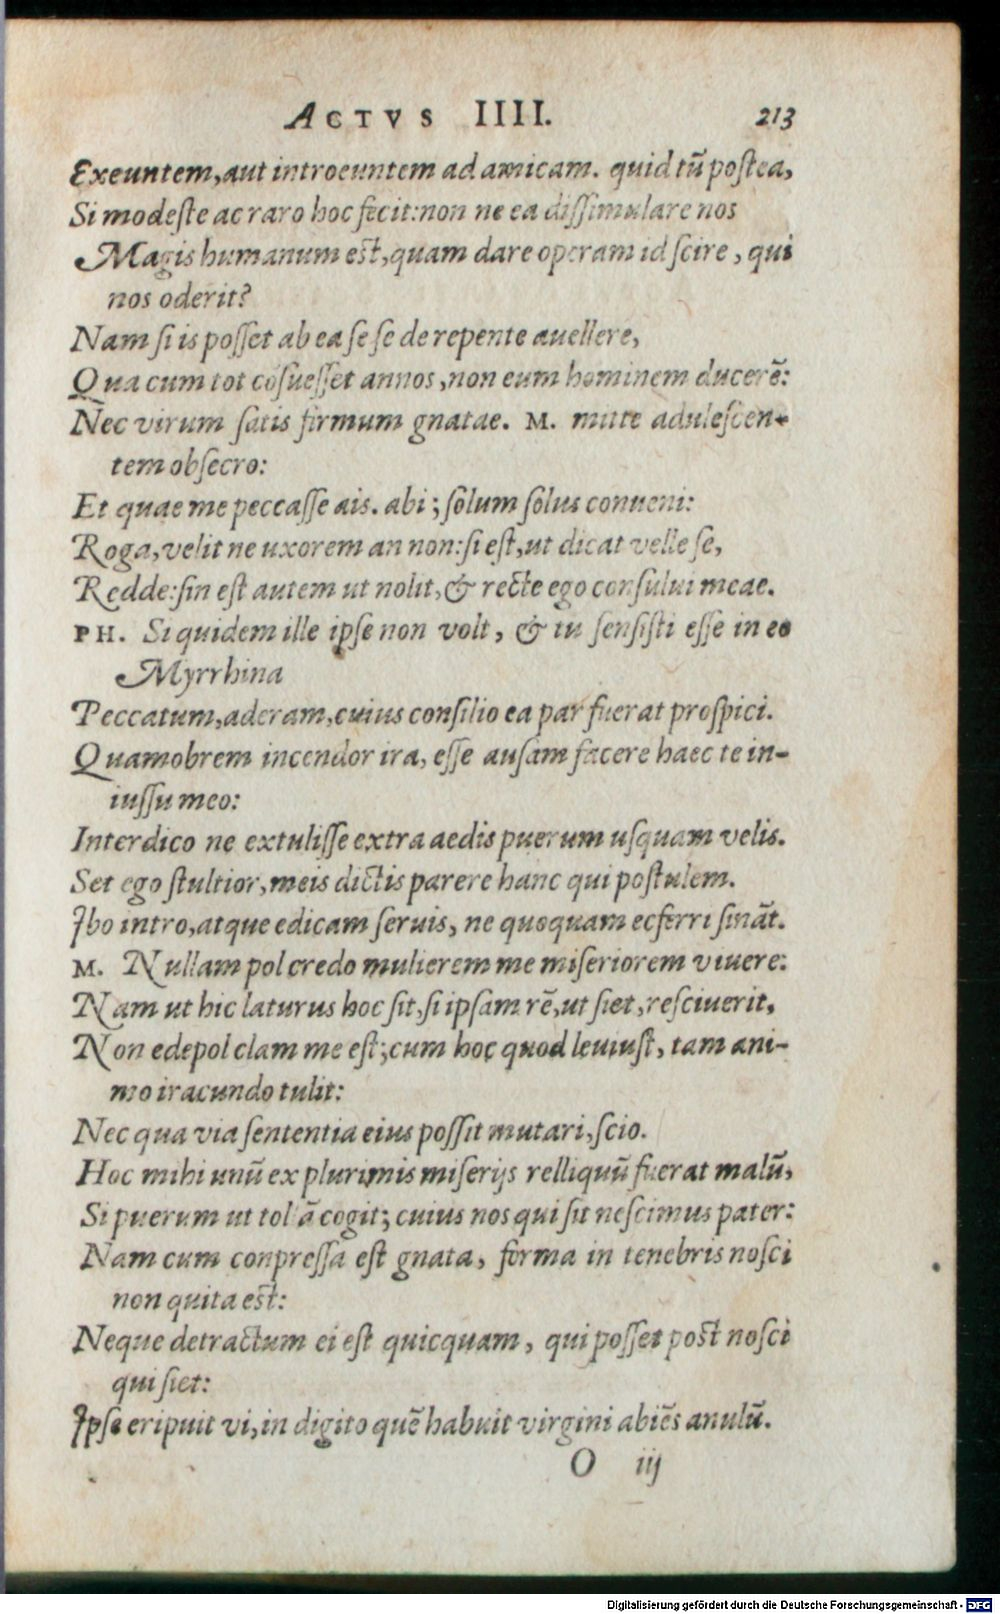 ACTVS IIII. 213
Exeuntem, aut introeuntem ad amicam. quid tū postea,
Si modeste ac raro hoc fecit: non ne ea dissimulare nos
Magis humanum est, quam dare operam id scire, qui
nos oderit?
Nam si is posset ab ea se se de repente auellere,
Qua cum tot cōsuesset annos, non eum hominem ducerē:
Nec virum satis firmum gnatae. M. mitte adulescen-
tem obsecro:
Et quae me peccasse ais. abi; solum solus conueni:
Roga, velit ne uxorem an non: si est, ut dicat velle se,
Redde: sin est autem ut nolit, & recte ego consului meae.
PH. Si quidem ille ipse non volt, & tu sensisti esse in eo
Myrrhina
Peccatum, aderam, cuius consilio ea par fuerat prospici.
Quamobrem incendor ira, esse ausam facere haec te in-
iussu meo:
Interdico ne extulisse extra aedis puerum usquam velis.
Set ego stultior, meis dictis parere hanc qui postulem.
Ibo intro, atque edicam seruis, ne quoquam ecferri sināt.
M. Nullam pol credo mulierem me miseriorem viuere:
Nam ut hic laturus hoc sit, si ipsam rē, ut siet, resciuerit,
Non edepol clam me est; cum hoc quod leuiust, tam ani-
mo iracundo tulit:
Nec qua via sententia eius possit mutari, scio.
Hoc mihi unū ex plurimis miserijs relliquū fuerat malū,
Si puerum ut tollā cogit; cuius nos qui sit nescimus pater:
Nam cum conpressa est gnata, forma in tenebris nosci
non quita est:
Neque detractum ei est quicquam, qui posset post nosci
qui siet:
Ipse eripuit vi, in digito quē habuit virgini abiēs anulū.
O iij
Digitalisierung gefördert durch die Deutsche Forschungsgemeinschaft - DFG